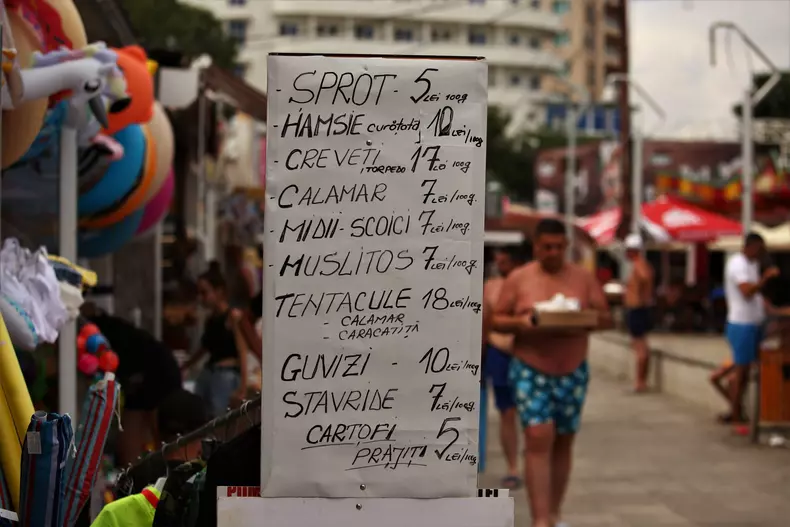 - SPROT - 5 LEI 100g
- HAMSIE curățată, 12 LEI/100g
- CREVEȚI, TORPEDO 17 LEI 100g
- CALAMAR 7 LEI/100g.
- MIDII-SCOICI 7 LEI/100g.
- MUSLITOS 7 LEI/100g.
TENTACULE 18 LEI/100g.
- CALAMAR
- CARACATIȚĂ
GUVIZI - 10 LEI/100g.
STAVRIDE 7 LEI/100g.
CARTOFI
PRĂJIȚI 5 LEI/100g